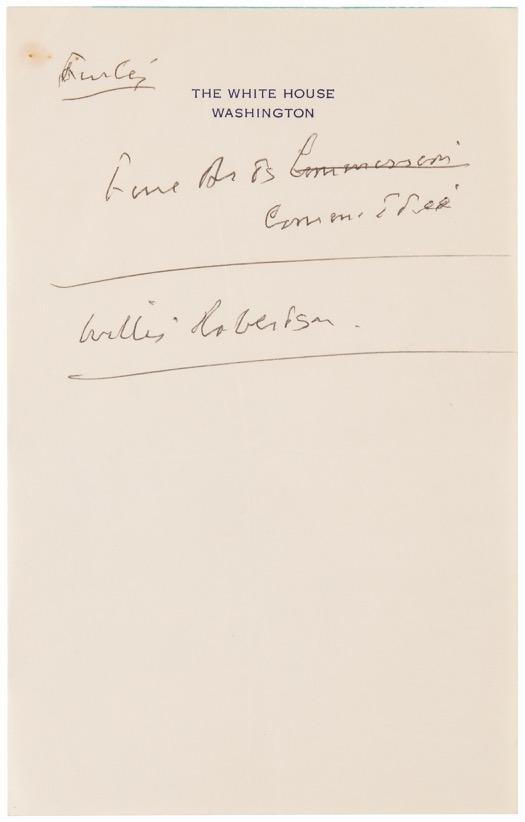 THE WHITE HOUSE
WASHINGTON
Fine Arts Commission
Committee
Willis Robertson.